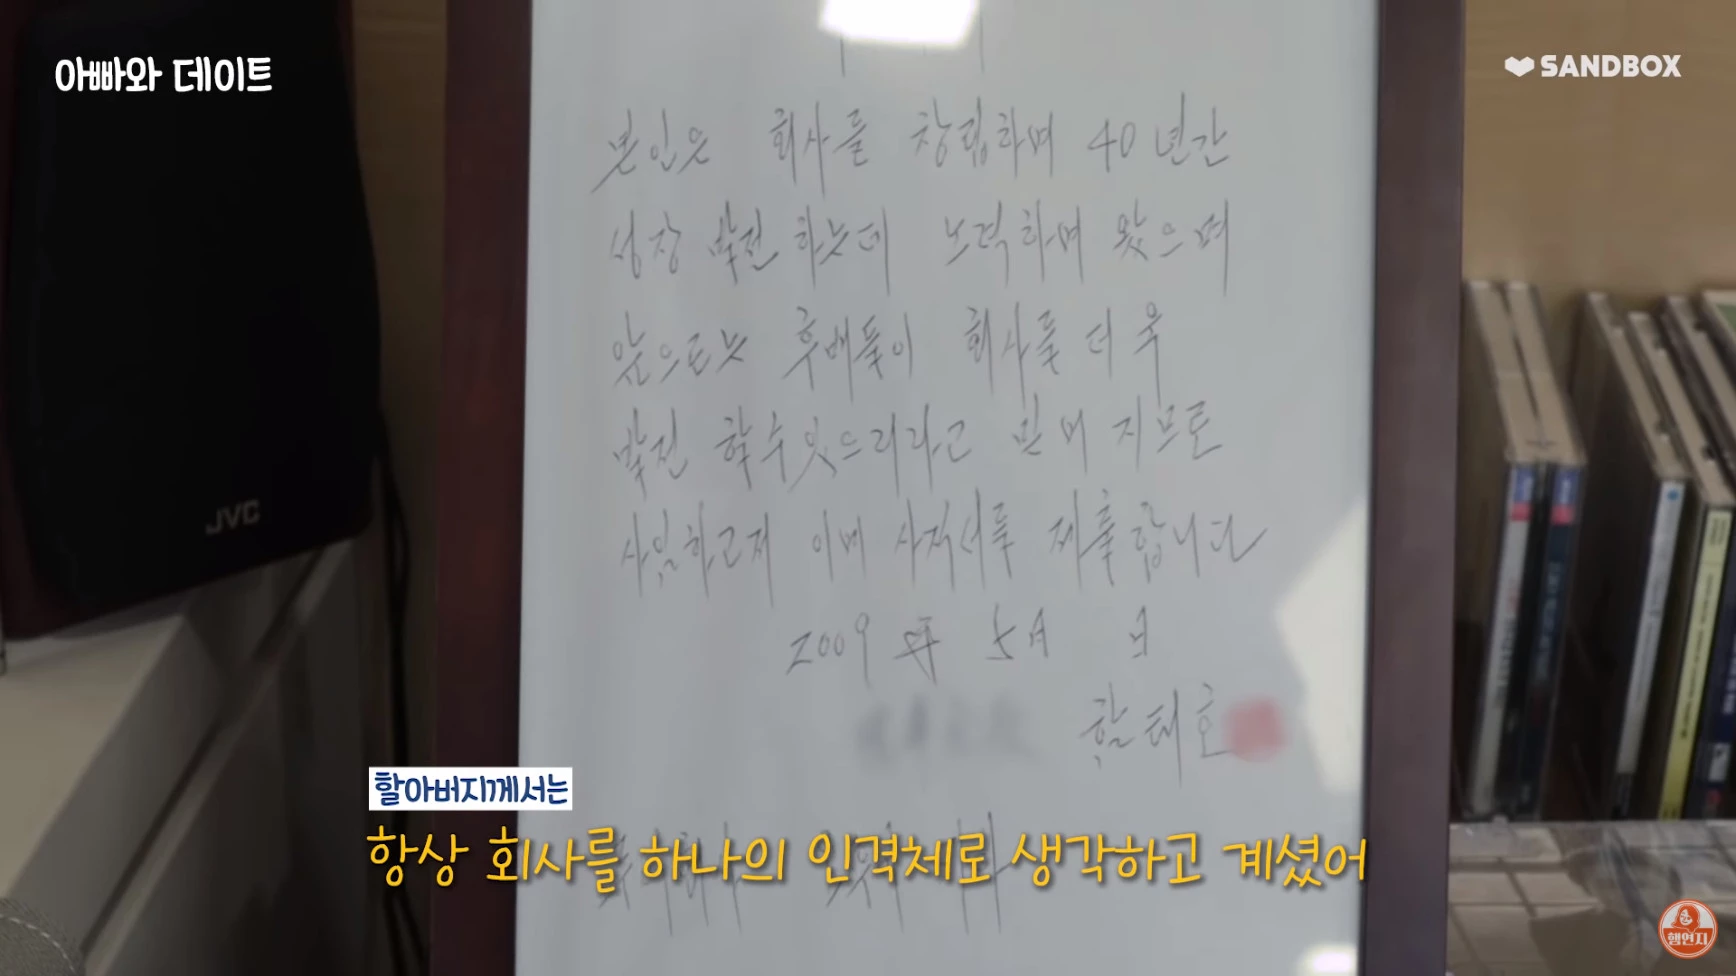 아빠와 데이트
SANDBOX
본인은 회사를 창립하며 40년간
성장 발전하는데 노력하며 왔으며
앞으로는 후배들이 회사를 더욱
발전 할수 있으리라고 믿어 지므로
사임하고저 이에 사직서를 제출합니다
2009年 5月 日
함태호
JVC
할아버지께서는
항상 회사를 하나의 인격체로 생각하고 계셨어
햄연지